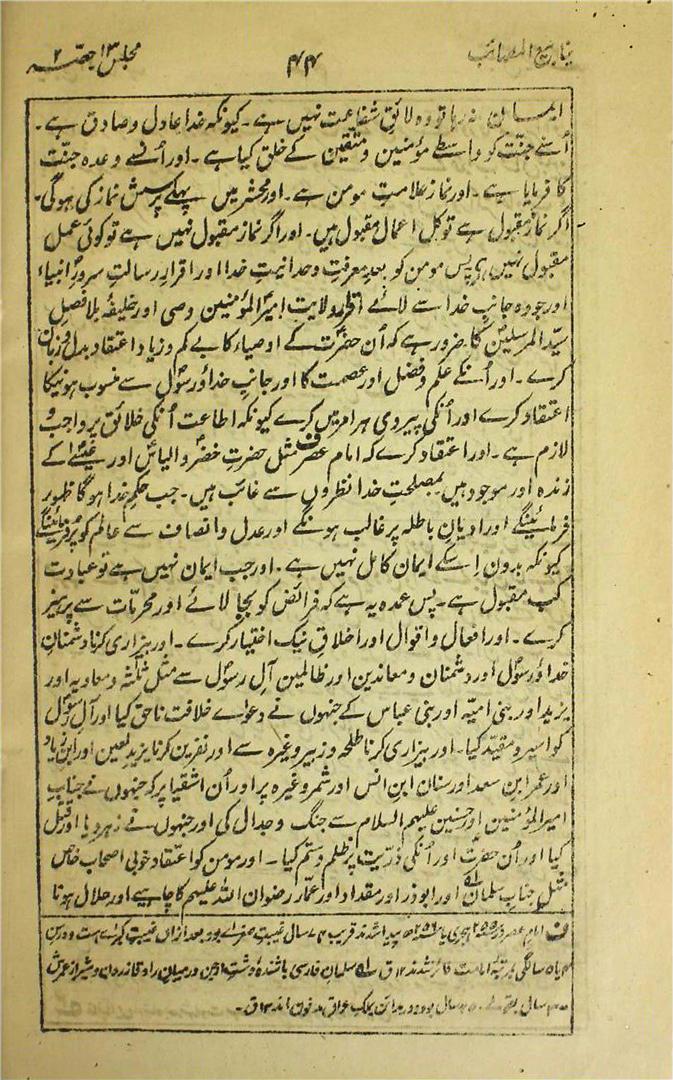 ینابیع المصائب ۴۴ مجلس ۱۳ حصہ ۲
ایمان نہ رہا تو وہ لائق شفاعت نہیں ہے۔ کیونکہ خدا عادل و صادق ہے۔
اُسنے جنّت کو واسطے مؤمنین و متقین کے خلق کیا ہے۔ اور اُنسے وعدہ جنّت
کا فرمایا ہے۔ اور نماز علامتِ مومن ہے۔ اور محشر میں پہلے پرسش نماز کی ہوگی۔
اگر نماز مقبول ہے تو کل اعمال مقبول ہیں۔ اور اگر نماز مقبول نہیں ہے تو کوئی عمل
مقبول نہیں ہے پس مومن کو بعد معرفتِ وحدانیتِ خدا اور اقرارِ رسالتِ سرورِ انبیاء
اور جو وہ جانبِ خدا سے لائے اقرار ولایت امیر المؤمنین وصی اور خلیفۂ بلا فصلِ
سیّد المرسلین کا ضرور ہے کہ اُن حضرت کے اوصیاء کا بے کم و زیاد اعتقاد بدل و زبان
کرے۔ اور اُنکے علم و فضل اور عصمت کا اور جانبِ خدا و رسول سے منسوب ہونیکا
اعتقاد کرے اور اُنکی پیروی ہر امر میں کرے کیونکہ اطاعت اُنکی خلائق پر واجب و
لازم ہے۔ اور اعتقاد کرے کہ امام عصر ف مثل حضرتِ خضر و الیاس اور عیسیٰ کے
زندہ اور موجود ہیں بمصلحتِ خدا نظروں سے غائب ہیں۔ جب حکمِ خدا ہوگا ظہور
فرمائینگے اور ادیانِ باطلہ پر غالب ہونگے اور عدل و انصاف سے عالم کو پُر فرمائینگے
کیونکہ بدون اِسکے ایمان کامل نہیں ہے۔ اور جب ایمان نہیں ہے تو عبادت
کب مقبول ہے۔ پس عمدہ یہ ہے کہ فرائض کو بجا لائے اور محرمّات سے پرہیز
کرے۔ اور افعال و اقوال اور اخلاقِ نیک اختیار کرے۔ اور بیزاری کرنا دشمنانِ
خدا و رسول اور دشمنان و معاندین اور ظالمین آلِ رسول سے مثل ثلٰثہ و معاویہ اور
یزید اور بنی امیّہ اور بنی عباس کے جنہوں نے دعوٰے خلافت ناحق کیا اور آلِ رسول
کو اسیر و مقیّد کیا۔ اور بیزاری کرنا طلحہ و زبیر وغیرہ سے اور نفرین کرنا یزید لعین اور ابن زیاد
اور عمر ابن سعد اور سنان ابن انس اور شمر وغیرہ پر اور اُن اشقیا پر کہ جنہوں نے جناب
امیر المؤمنین اور حسنین علیہم السلام سے جنگ و جدال کی اور جنہوں نے زہر دیا اور قتل
کیا اور اُن حضرت اور اُنکی ذُرّیت پر ظلم و ستم کیا۔ اور مومن کو اعتقاد خوبی اصحاب خاص
مثل جناب سلمان اور ابوذر اور مقداد اور عمّار رضوان اللہ علیہم کا چاہیے اور حلال ہونا
ف امام عصر در ۲۵۵ ہجری یا ۲۵۶ھ پیدا شدند قریب ۷۴ سال غیبتِ صغرٰے بود بعد ازاں غیبتِ کبرٰے است و درسن
سالگی بمرتبۂ امامت فائز شدند ۱۲ ق سلمان فارسی باشندۂ دشت ارجن درمیان راہ کازرون و شیراز عمرش
سال بقولے ۲۵۰ سال بود و در مدائن بملک عراق مدفون اند ۱۲ ق۔